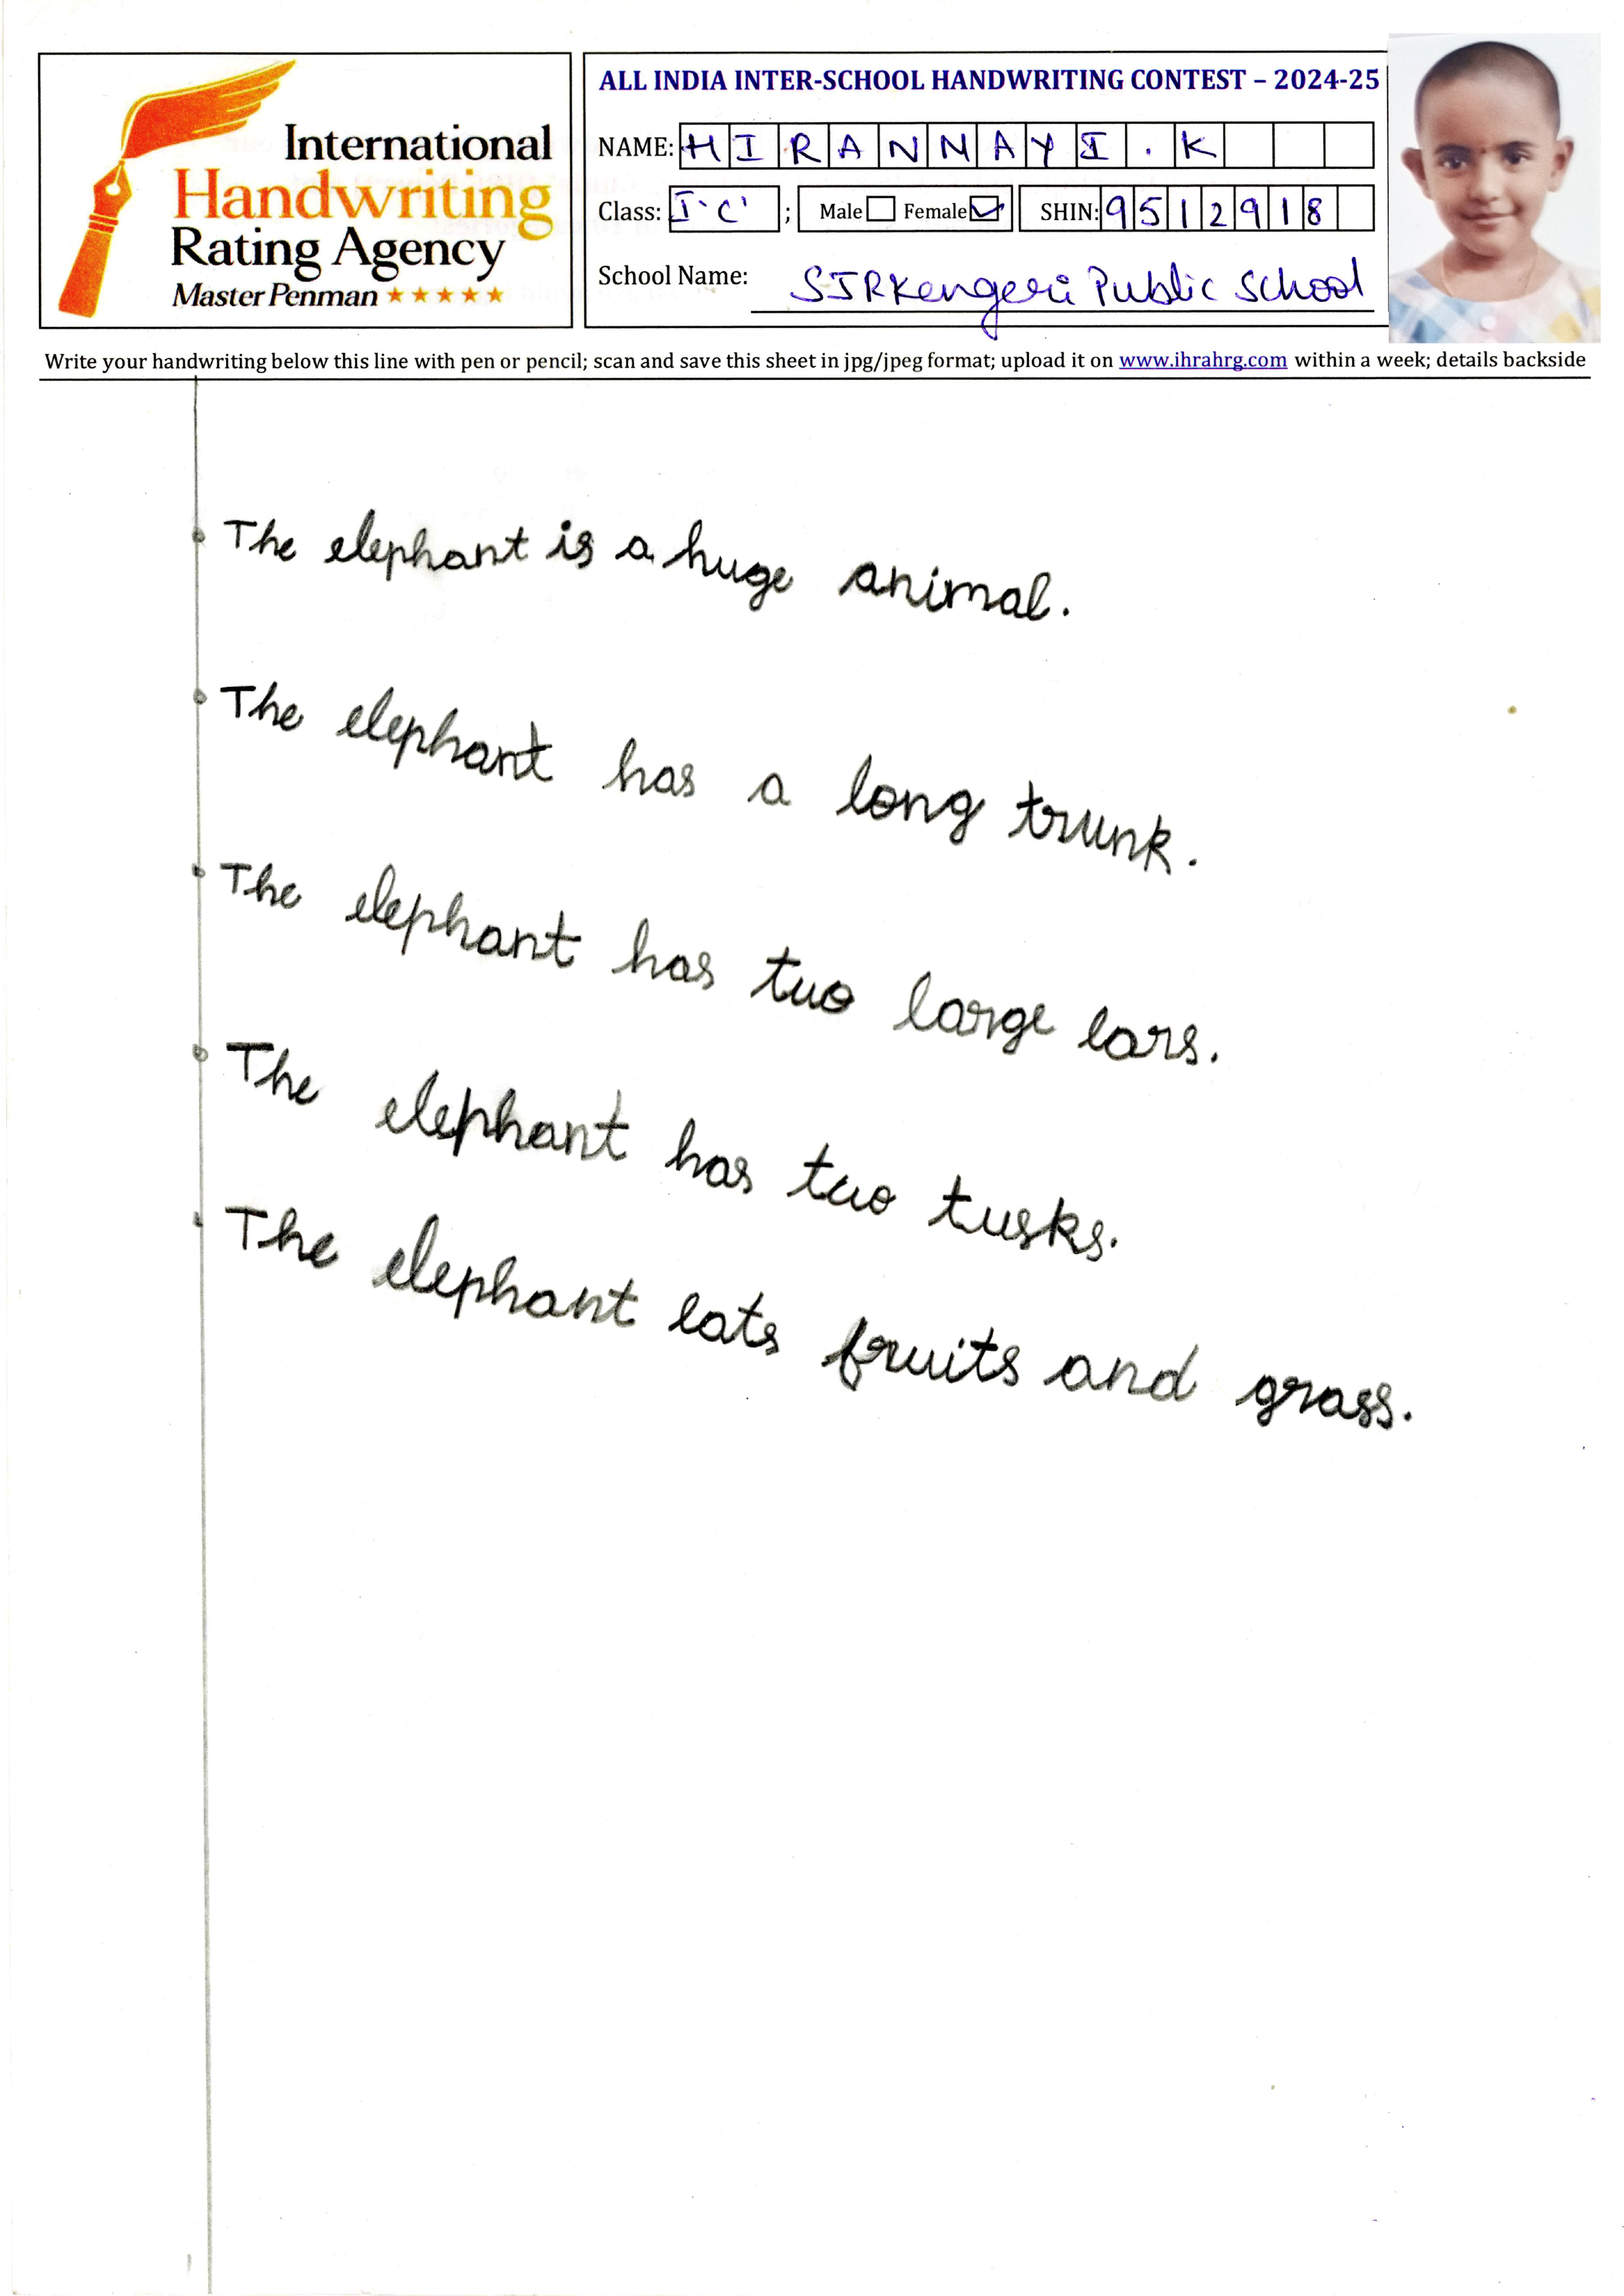 International
Handwriting
Rating Agency
Master Penman ★★★★★
ALL INDIA INTER-SCHOOL HANDWRITING CONTEST – 2024-25
NAME: HIRANNAYI.K
Class: I 'C' ; Male Female SHIN: 9512918
School Name: SJRKengeri Public School
Write your handwriting below this line with pen or pencil; scan and save this sheet in jpg/jpeg format; upload it on www.ihrahrg.com within a week; details backside
The elephant is a huge animal.
The elephant has a long trunk.
The elephant has two large ears.
The elephant has two tusks.
The elephant eats fruits and grass.